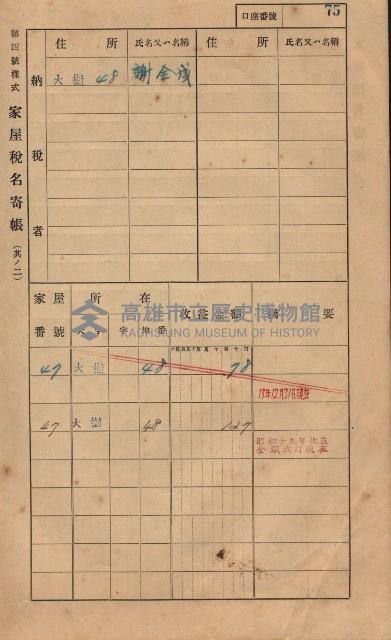 口座番號 75
第四號樣式 家屋稅名寄帳 (其ノ二)
納稅者
住所 氏名又ハ名稱 住所 氏名又ハ名稱
大樹 48 謝全成
家屋番號 所在 大字 字 地番 收益金額 摘要
47 大樹 48 78
19年12月31日現在
47 大樹 48 127
昭和十九年收益
金額改訂現在
高雄市立歷史博物館
KAOHSIUNG MUSEUM OF HISTORY